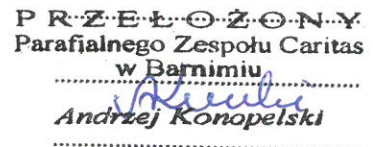 P R Z E Ł O Ż O N Y
Parafialnego Zespołu Caritas
w Barnimiu
Andrzej Konopelski